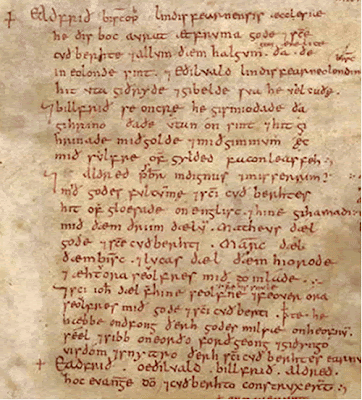 + Eadfrið biscop lindisfearnensis æcclesiæ
he ðis boc avrat æt frvma gode 7 sce
gimænelice
cvðberhte 7 allvm ðæm halgvm. ða. ðe
in eolonde sint. 7 Eðilvald lindisfearneolondinga
hit vta giðryde 7 gibelde sva he vel cuðæ.
7 billfrið se oncre he gismioðade ða
gihrino ða ðe vtan on sint 7 hit gi
hrinade mið golde 7 mið gimmvm ęc
mið svlfre of gylded faconleas feh:
7 ic Aldred p̄br indignus 7 misserrimus
mið godes fvltvmę 7 sci cvðberhtes
hit of gloesade on englisc. 7 hine gihamadi
mið ðæm ðriim dælvm. Mathevs dæl
gode 7 sce cvðberhti. Marc' dæl
ðæm bisc'. 7 lvcas dæl ðæm hiorode
7 æhtv ora seolfres mið to inlade.
7 sci ioh' dæl f' hine seolfne 7 feover ora
seolfres mið gode 7 sci cvðberti. þ'te he
hæbbe ondfong ðerh godes milsæ on heofnv'.
seel 7 sibb on eorðo forðgeong 7 giðyngo
visdom 7 snyttro ðerh sci cvðberhtes earnvnga
+ Eadfrið. oeðilvald. billfrið. aldred.
hoc evange' do 7 cvðberhto constrvxerv̄t: